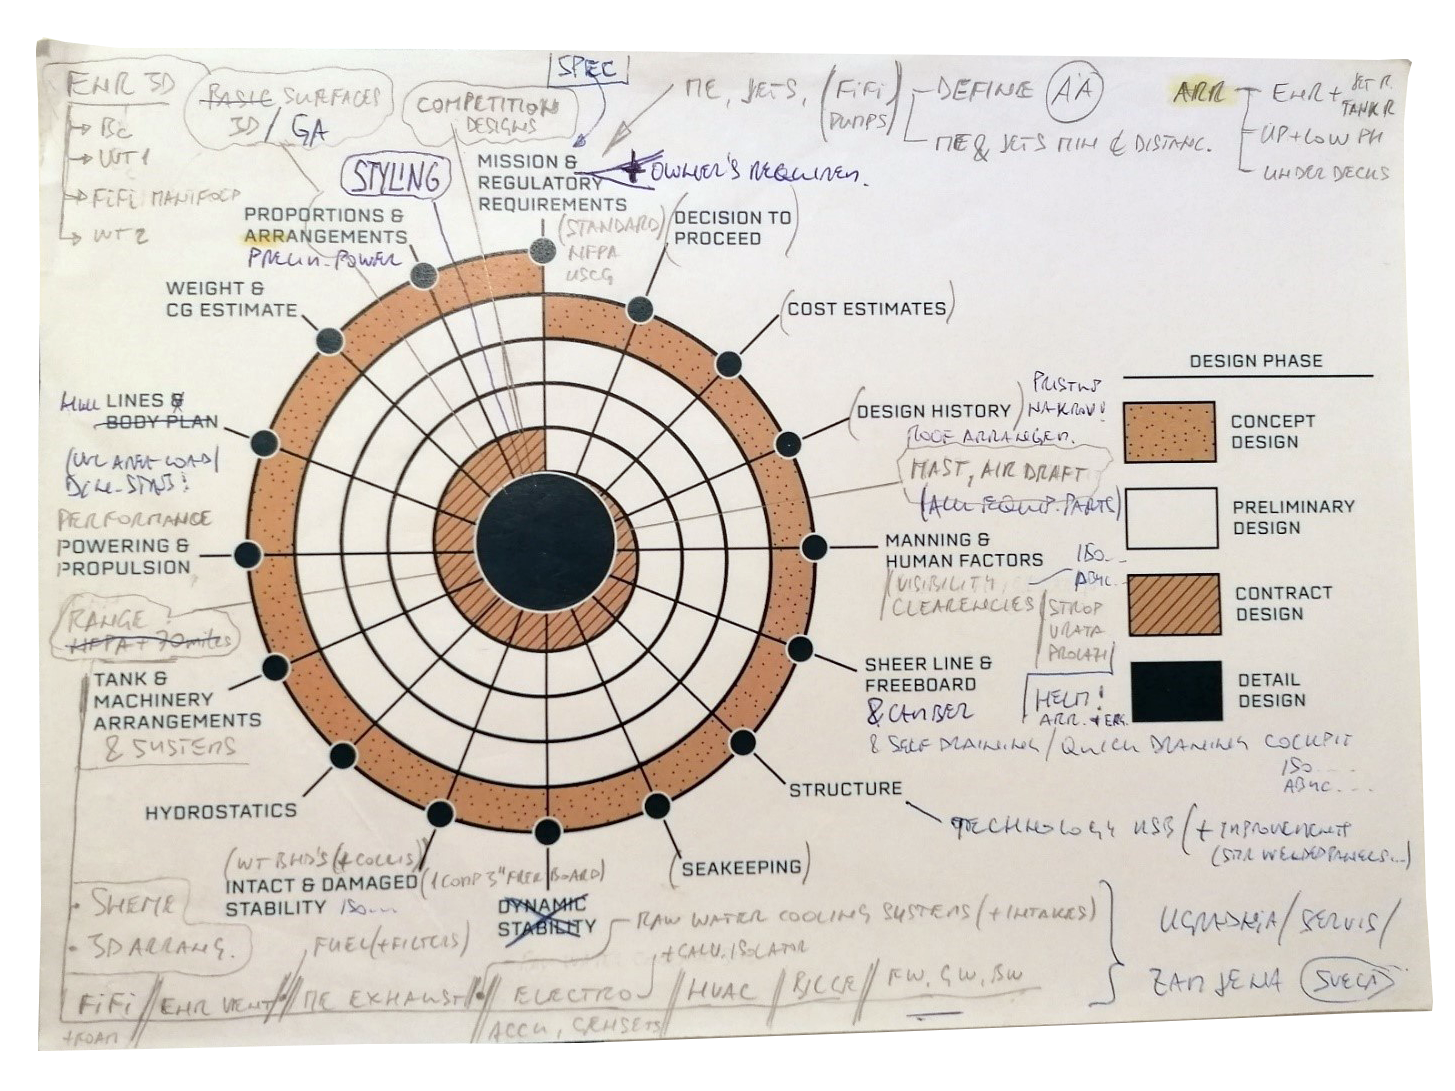 ENR 3D
WT 1
FiFi MANIFOLD
WT 2
BASIC SURFACES
3D / GA
COMPETITION
DESIGNS
STYLING
SPEC
ME, JETS, (FiFi
PUMPS)
DEFINE AA
ME & JETS MIN ¢ DISTANC.
ARR
ENR + JET R.
TANK R
UP + LOW PH
UNDER DECKS
MISSION &
REGULATORY
REQUIREMENTS
+ OWNER'S REQUIREM.
(STANDARD)
NFPA
USCG
PROPORTIONS &
ARRANGEMENTS
PRELIM. POWER
WEIGHT &
CG ESTIMATE
HULL LINES &
BODY PLAN
PERFORMANCE
POWERING &
PROPULSION
RANGE
NFPA + 70 miles
TANK &
MACHINERY
ARRANGEMENTS
& SYSTEMS
HYDROSTATICS
(WT BHD'S (+ COLLIS)
INTACT & DAMAGED
STABILITY ISO...
(1 COMP 3" FREEBOARD)
DYNAMIC
STABILITY
(SEAKEEPING)
STRUCTURE
TECHNOLOGY NSB (+ IMPROVEMENTS
(STR WELDED PANELS...)
SHEER LINE &
FREEBOARD
& CAMBER
& SELF DRAINING / QUICK DRAINING COCKPIT
ISO ....
ABYC....
HELM!
ARR. + ERG.
MANNING &
HUMAN FACTORS
ISO...
ABYC...
VISIBILITY,
CLEARENCIES
STROP
VRATA
PROLAZI
(DESIGN HISTORY)
PRISTUP
NA KROV!
ROOF ARRANGEM.
MAST, AIR DRAFT
(ALL EQUIP. PARTS)
(COST ESTIMATES)
(DECISION TO
PROCEED)
DESIGN PHASE
CONCEPT
DESIGN
PRELIMINARY
DESIGN
CONTRACT
DESIGN
DETAIL
DESIGN
• SHEME
• 3D ARRANG.
FUEL (+ FILTERS)
RAW WATER COOLING SYSTEMS (+ INTAKES)
+ GALV. ISOLATOR
FiFi // ENR VENT // ME EXHAUST // ELECTRO // HVAC / BILGE // FW, GW, BW
+ FOAM
ACCU, GENSETS
UGRADNJA / SERVIS /
ZAMJENA SVEGA